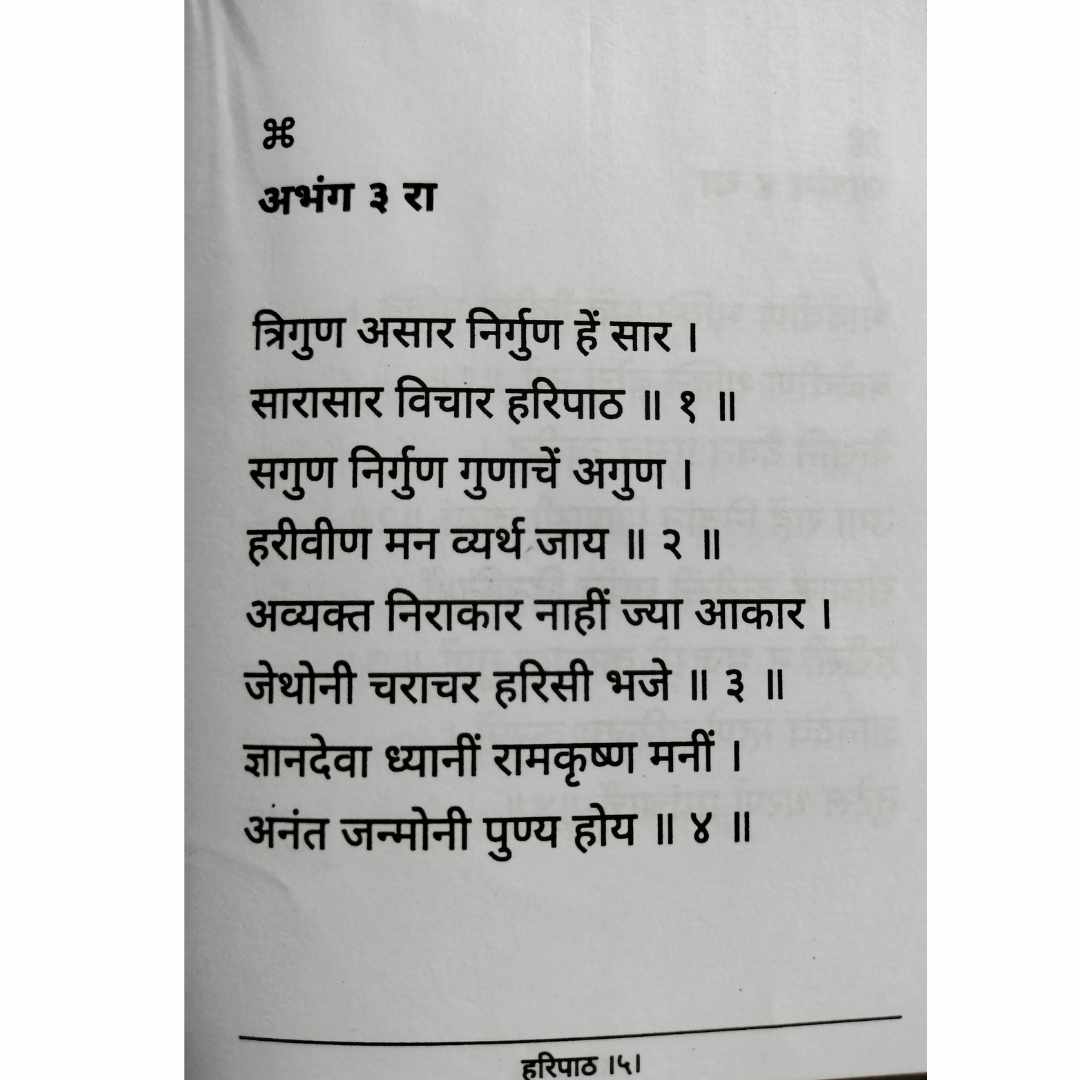 ⌘
अभंग ३ रा
त्रिगुण असार निर्गुण हें सार ।
सारासार विचार हरिपाठ ॥ १ ॥
सगुण निर्गुण गुणाचें अगुण ।
हरीवीण मन व्यर्थ जाय ॥ २ ॥
अव्यक्त निराकार नाहीं ज्या आकार ।
जेथोनी चराचर हरिसी भजे ॥ ३ ॥
ज्ञानदेवा ध्यानीं रामकृष्ण मनीं ।
अनंत जन्मोनी पुण्य होय ॥ ४ ॥
हरिपाठ ।५।